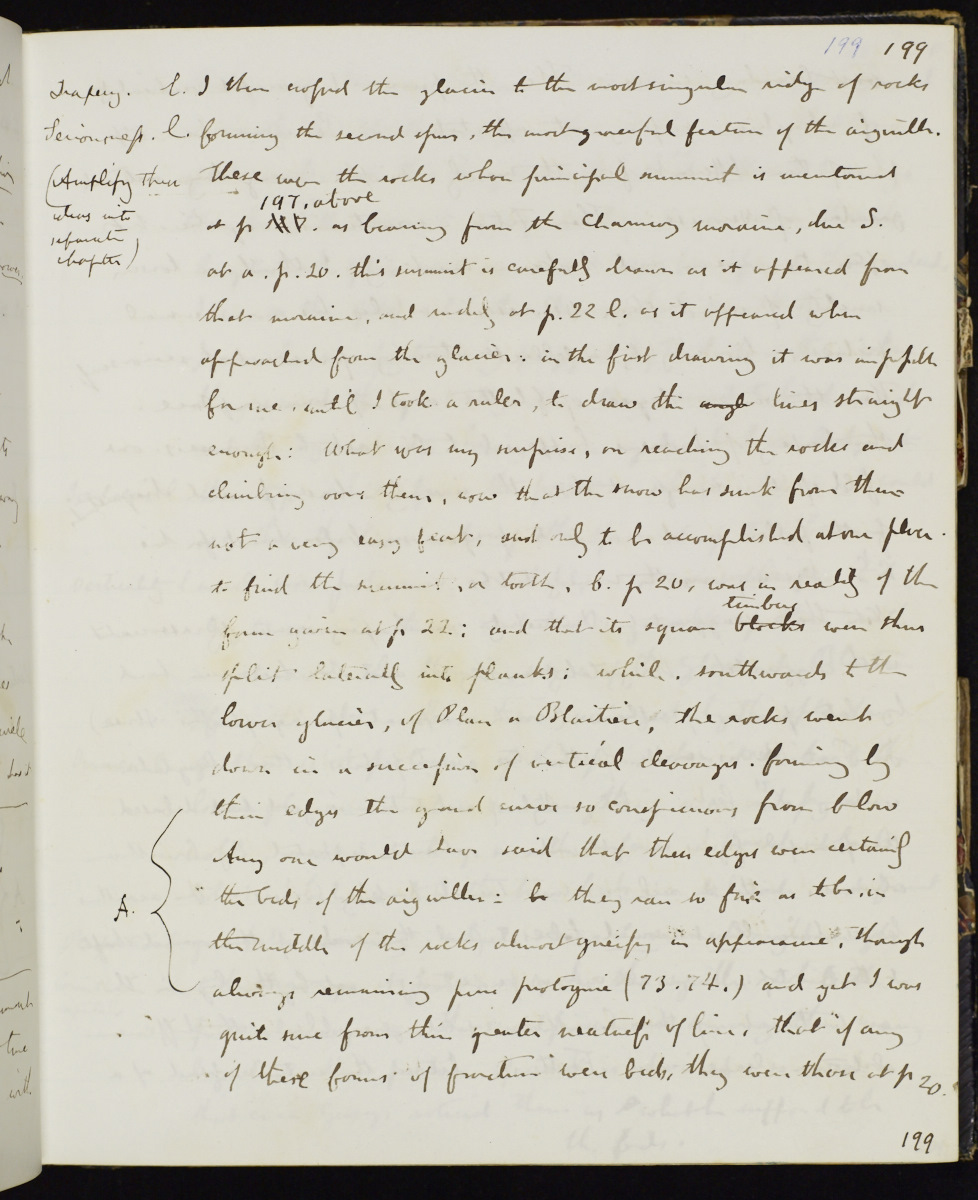 199 199
Drapery. l. I then crossed the glacier to the most singular ridge of rocks
Seriousness. l. forming the second spur, the most graceful feature of the aiguille.
(Amplify these ideas into separate chapter)
These were the rocks whose principal summit is mentioned
197. above
at p. . as bearing from the Chamouny moraine, due S.
at a. p. 20. this summit is carefully drawn as it appeared from
that moraine, and rudely at p. 22 l. as it appeared when
approached from the glacier: in the first drawing it was impossible
for me, until I took a ruler, to draw the angle lines straight
enough: What was my surprise, on reaching the rocks and
climbing over them, now that the snow has sunk from them
not a very easy feat, and only to be accomplished at one place.
to find the summit, or tooth, b. p 20, was in reality of the
timbers
form given at p 22.; and that its square blocks were thus
split laterally into planks: while, southwards to the
lower glacier, of Plan a Blaitiere, the rocks went
down in a succession of vertical cleavages. forming by
their edges the grand curve so conspicuous from below
Any one would have said that these edges were certainly
the beds of the aiguilles: they ran so fine as to be, in
A.
the middle of the rocks almost gneissy in appearance, though
always remaining pure protogine (73. 74.) and yet I was
quite sure from their greater neatness of line, that if any
of these forms of fracture were beds, they were those at p 20.
199